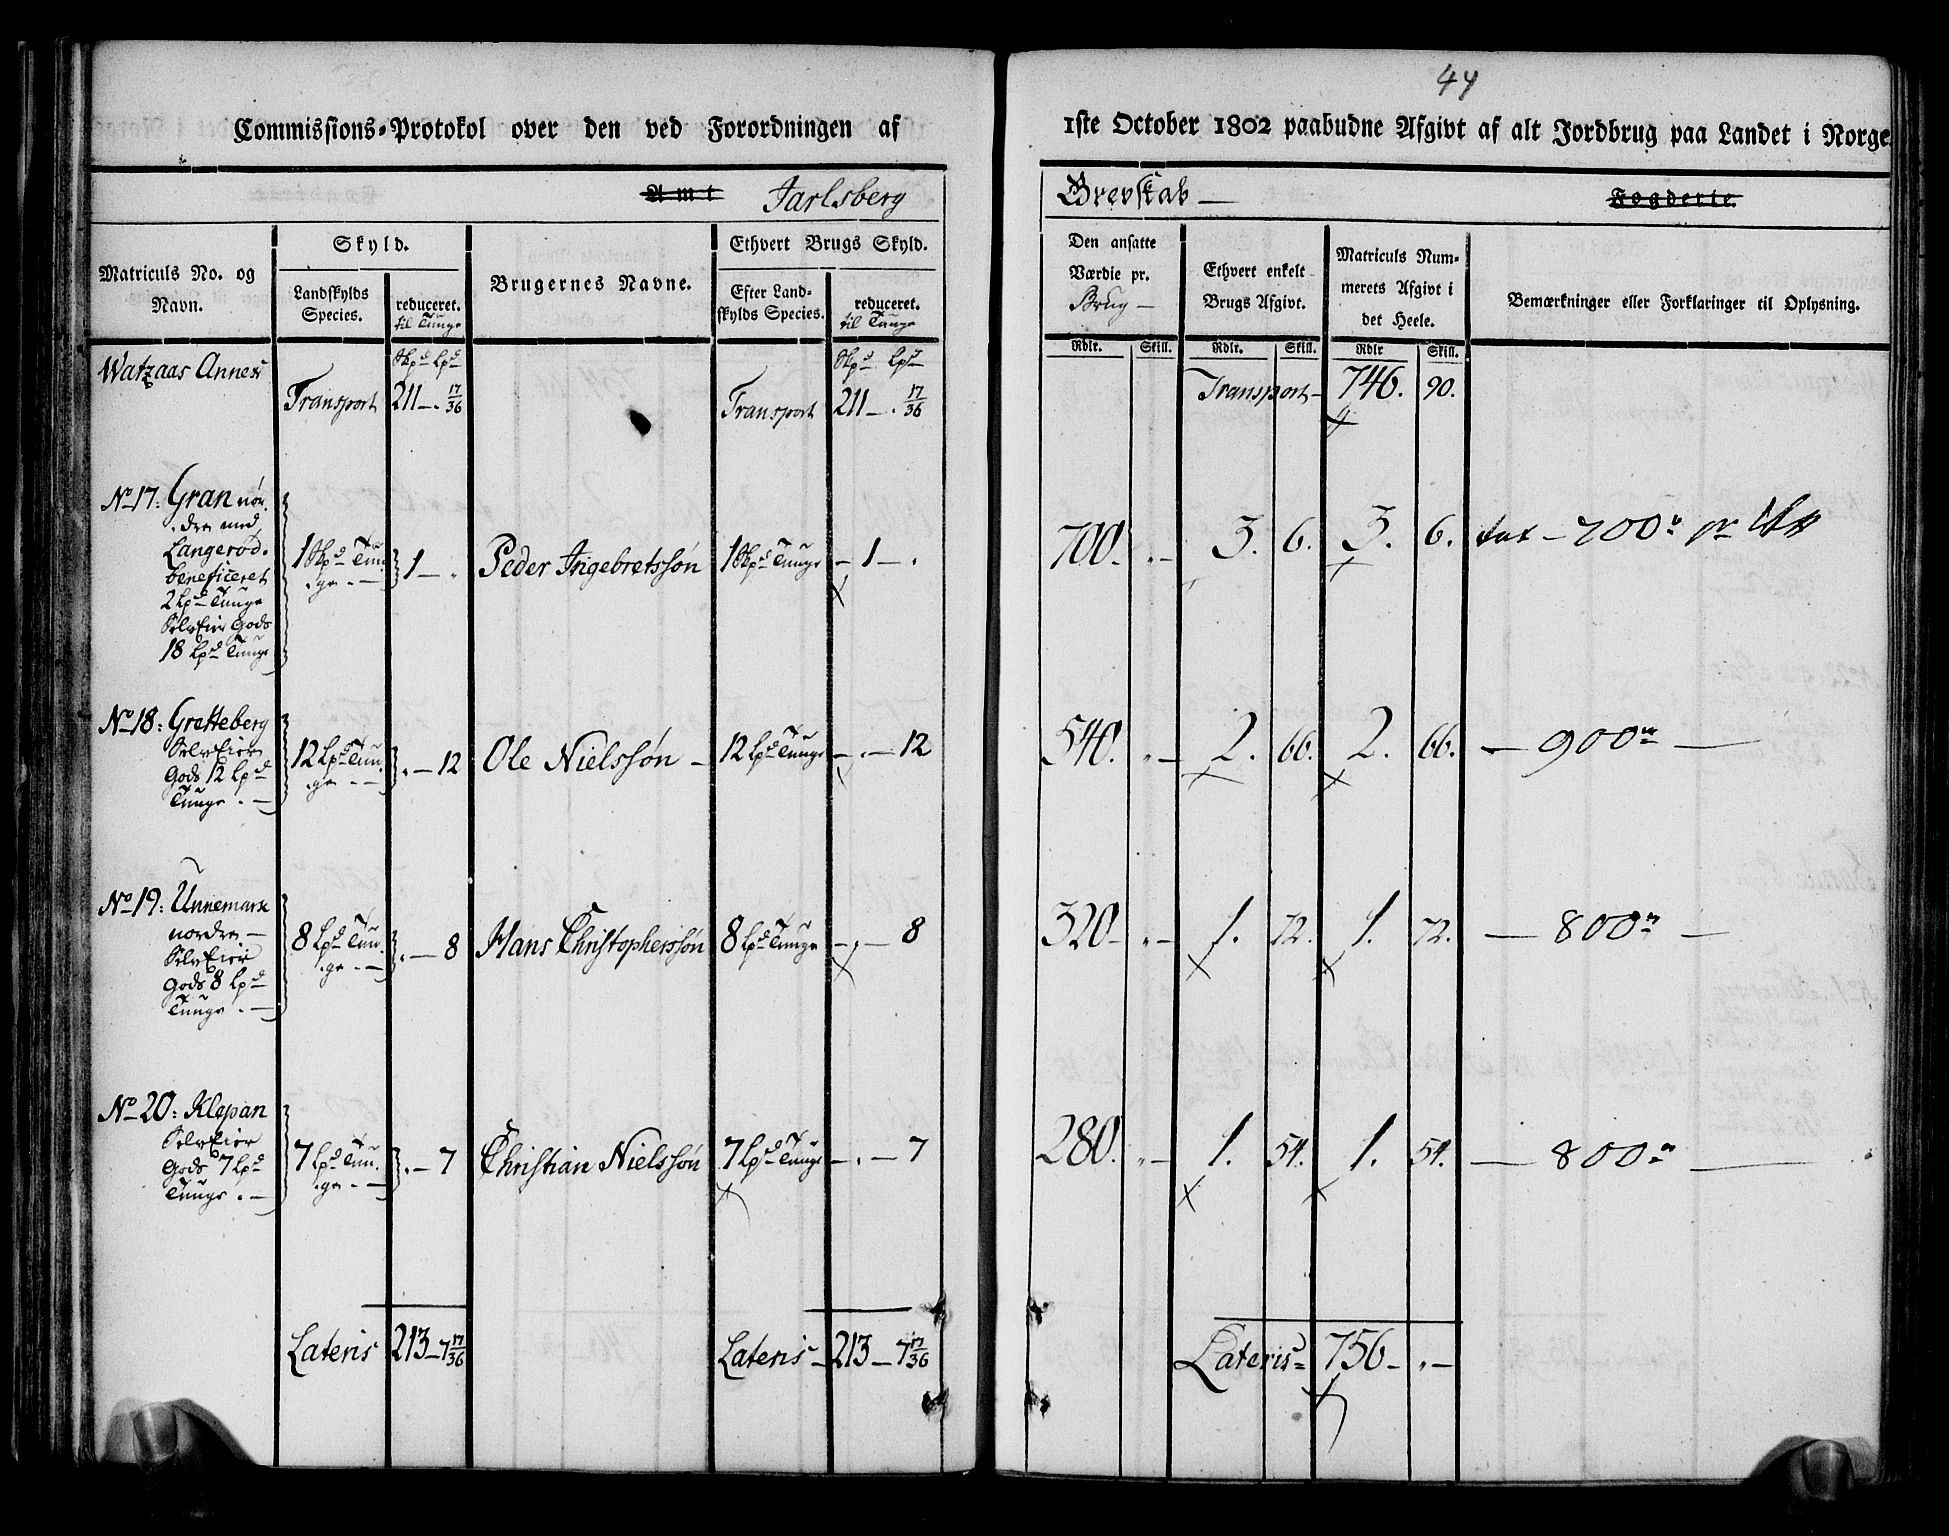 44
Commissions-Protokol over den ved Forordningen af 1ste October 1802 paabudne Afgivt af alt Jordbrug paa Landet i Norge.
Amt Jarlsberg Grevskab — Fogderie.
Matriculs No. og Navn.
Skyld.
Landskylds Species.
reduceret. til Tunge
Brugernes Navne.
Ethvert Brugs Skyld.
Efter Landskylds Species.
reduceret. til Tunge
Den ansatte Værdie pr. Brug —
Ethvert enkelt Brugs Afgivt.
Matriculs Nummerets Afgivt i det Heele.
Bemærkninger eller Forklaringer til Oplysning.
Skpd Lpd Skpd Lpd Rdlr. Skill. Rdlr. Skill. Rdlr Skill.
Watzaas Annex
Transport 211 — . 17/36 Transport 211 — . 17/36 Transport — 746. 90.
No 17: Gran nør-
dre med
Langerød.
beneficeret
2 Lpd Tunge
SelvEier Gods
18 Lpd Tunge
1 Skpd Tunge . — 1 — . Peder Ingebretssøn 1 Skpd Tunge — 1 — . 700. „ — 3. 6. 3. 6. — 700
No 18: Gretteberg
SelvEier
Gods 12 Lpd
Tunge . —
12 Lpd Tunge . — . — 12 Ole Nielssøn — 12 Lpd Tunge — . — 12 540. „ — 2. 66. 2. 66. — 900 —
No 19: Unnemark
nordre —
SelvEier
Gods 8 Lpd
Tunge . —
8 Lpd Tunge . — . — 8 Hans Christophersøn 8 Lpd Tunge — . — 8 320 — „ — 1. 72. 1. 72. — 800 —
No 20: Klopan
SelvEier
Gods 7 Lpd
Tunge . —
7 Lpd Tunge . — . — 7 Christian Nielssøn 7 Lpd Tunge — . — 7 280. „ — 1. 54. 1. 54. — 800 —
Lateris 213 — 7 17/36 Lateris — 213 — 7 17/36 Lateris = 756 — „ —